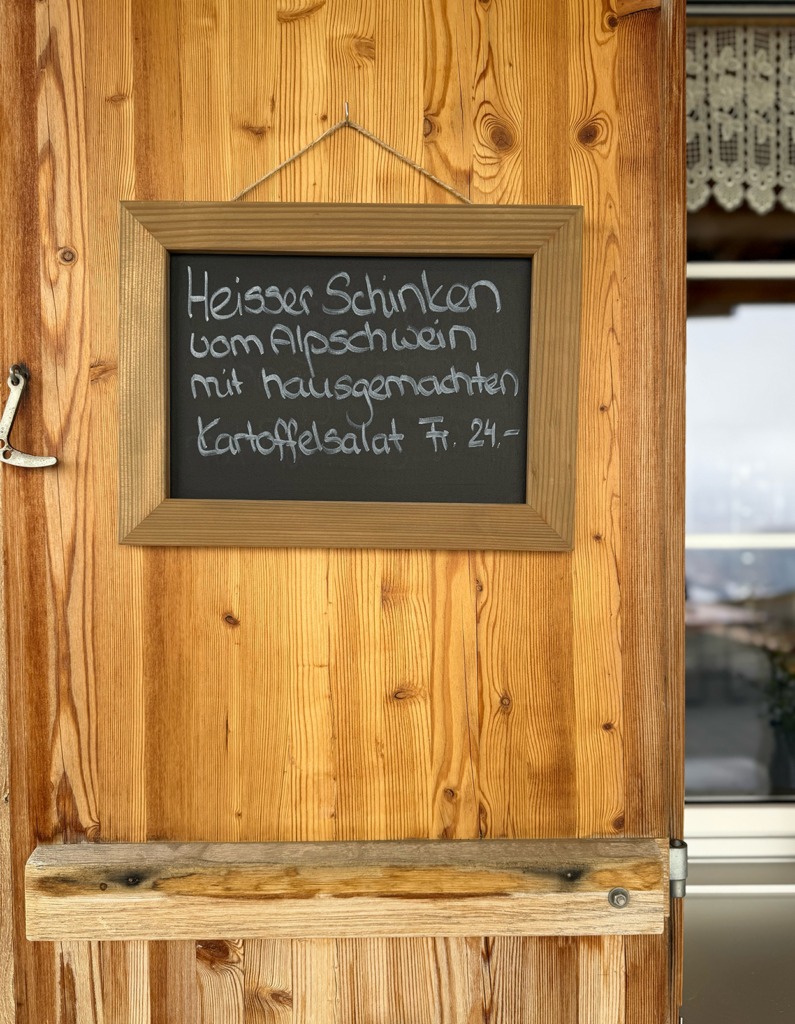 Heisser Schinken
vom Alpschwein
mit hausgemachten
Kartoffelsalat Fr. 24.-